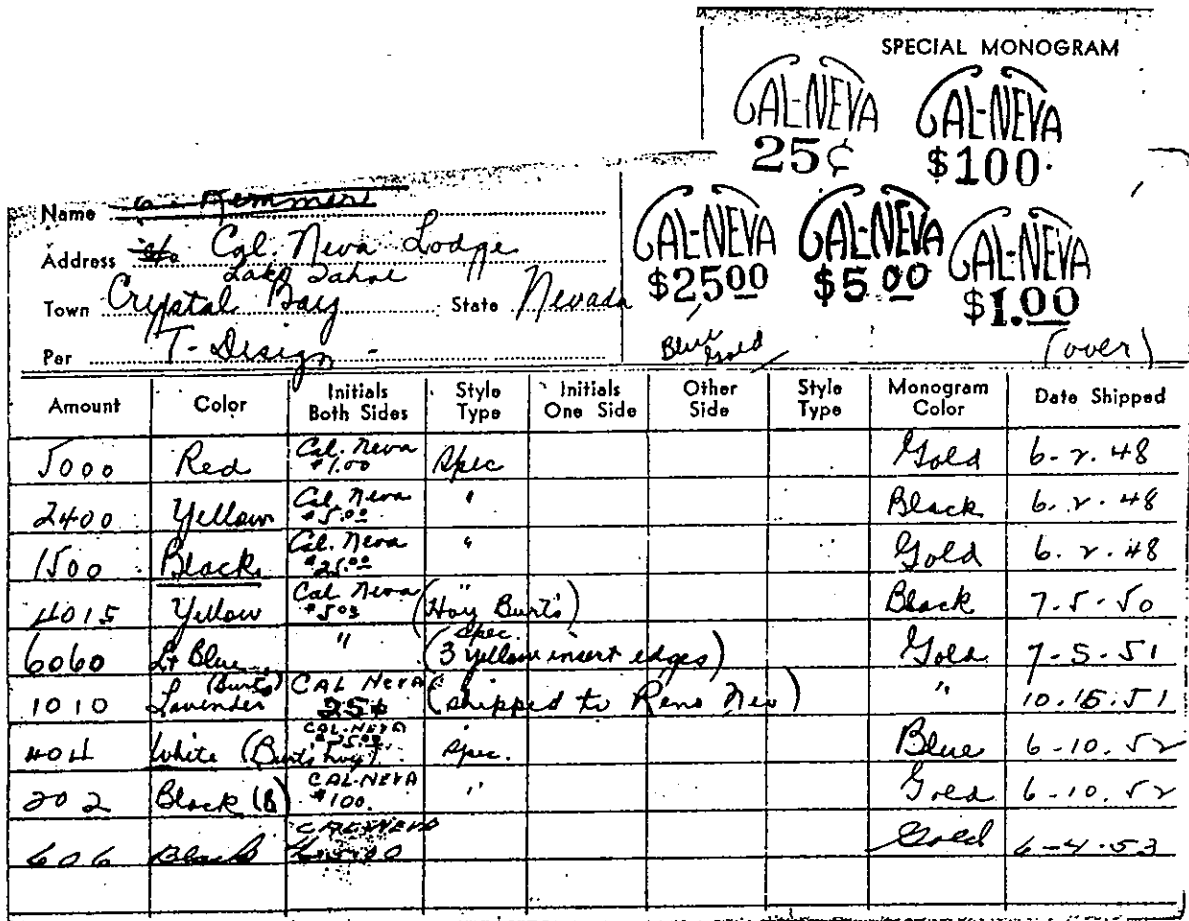 SPECIAL MONOGRAM
CAL-NEVA CAL-NEVA
25¢ $100.
CAL-NEVA CAL-NEVA CAL-NEVA
$25 00 $5.00 $1.00
Blue Gold (over)
Name
Address c/o Cal. Neva Lodge
Lake Tahoe
Town Crystal Bay State Nevada
Per T-Design
Amount Color Initials Both Sides Style Type Initials One Side Other Side Style Type Monogram Color Date Shipped
5000 Red Cal. Neva $1.00 Spec Gold 6-2.48
2400 Yellow Cal. Neva $5.00 " Black 6.2.48
1500 Black Cal. Neva $25.00 " Gold 6.2.48
4015 Yellow Cal Neva $5.00 " (Hoy Burt's) Black 7-5-50
6060 Lt Blue " Spec. (3 yellow insert edges) Gold 7-5-51
1010 Lavender (Burt's) CAL NEVA 25¢ (shipped to Reno Nev) " 10.15.51
404 White (Burt's hoy) CAL-NEVA Spec. Blue 6-10.52
202 Black (B) CAL-NEVA $100. " Gold 6-10.52
606 Black CAL-NEVA Gold 6-4-53